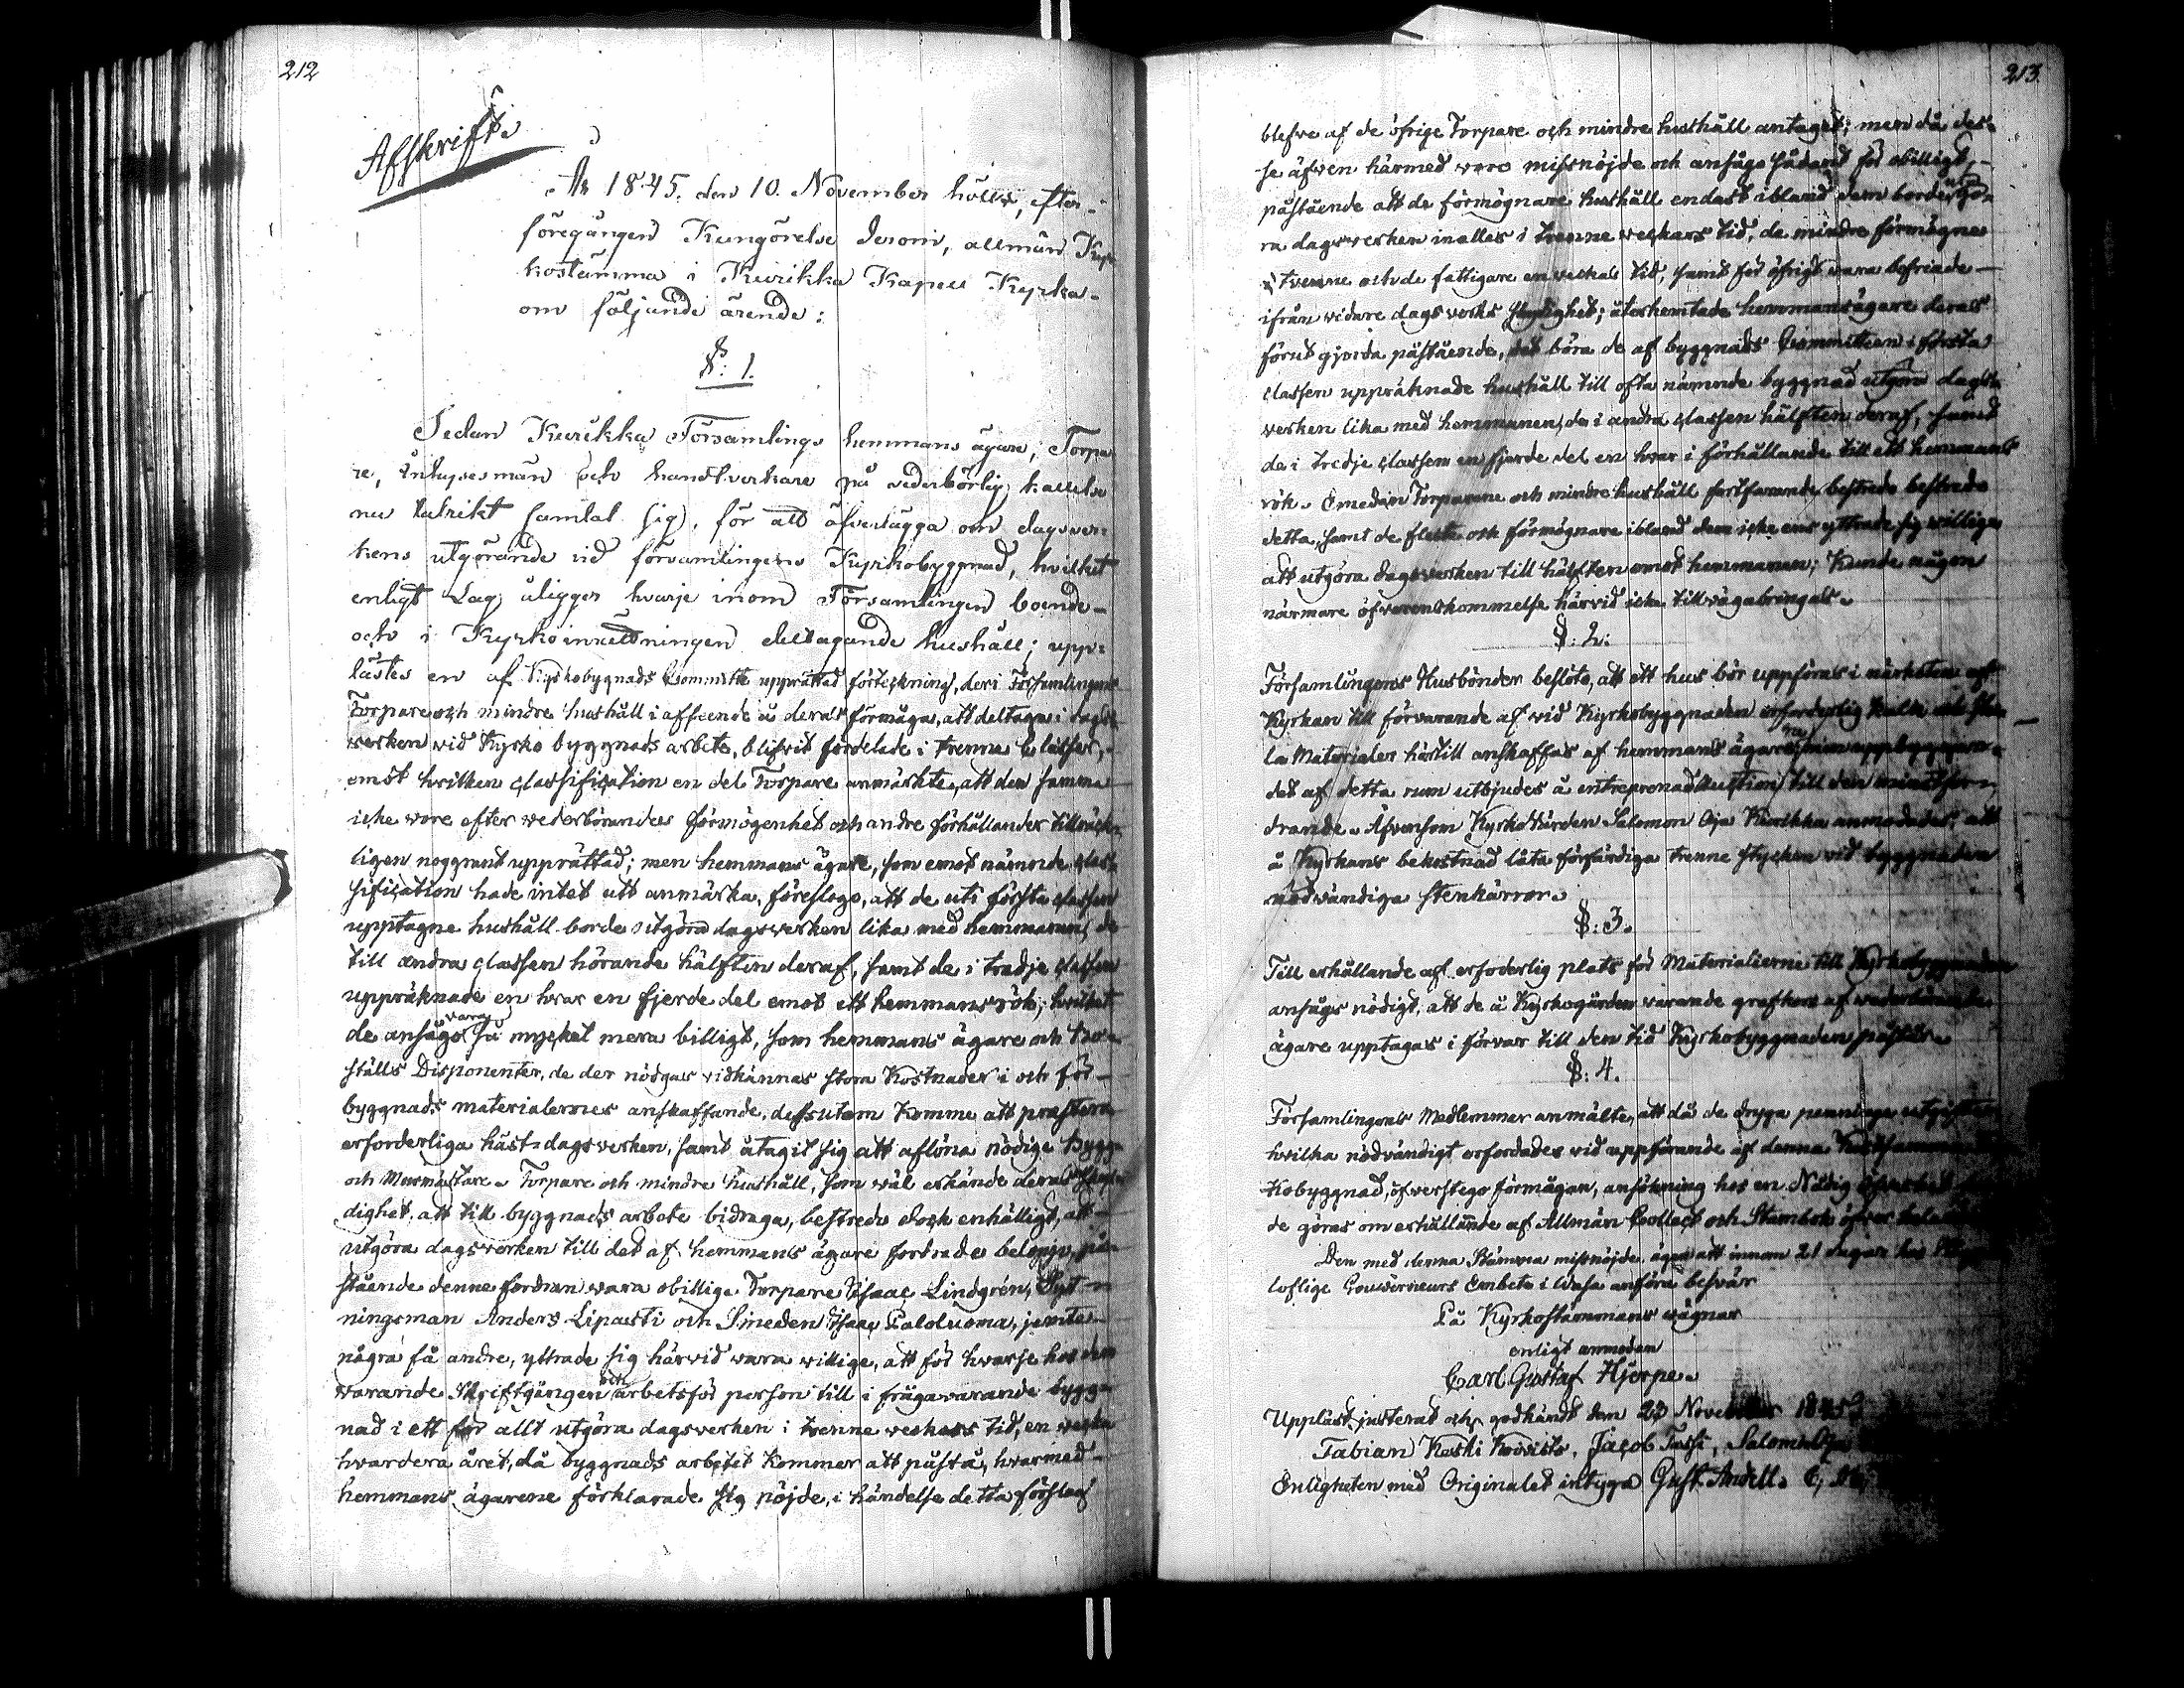 212
Afskrift.
År 1845. den 10. November hölls, efter-
föregången Kungörelse derom, allmän Kyr-
kostämma i Kurikka Kapell Kyrka-
om följande ärende:
§: 1.
Sedan Kurikka Församlings hemmans ägare, Torpa
re, Inhysesmän och handtverkare på vederbörlig kallelse
nu talrikt samlat sig, för att öfverlägga om dagsver-
kens utgörande vid församlingens Kyrkobyggnad, hvilket
enligt Lag åligger hvarje inom Församlingen boende-
och i Kyrkoinrättningen deltagande hushåll; upp-
lästes en af Kyrkobygnads Committé upprättad förteckning, deri Församlingens
Torpare och mindre hushåll i afseende å deras förmåga, att deltaga i dags-
werken vid Kyrko byggnads arbete, blifvit fördelade i trenne Classer,-
emot hvilken classification en del Torpare anmärkte, att den samma
icke wore efter wederbörandes förmögenhet och andre förhållander tillräck-
ligen noggrant upprättad; men hemmans ägare, som emot nämnde clas-
sification hade intet att anmärka, föreslogo, att de uti första classen
upptagne hushåll borde utgöra dagsverken lika med hemmanen, de
till andra classen hörande hälften deraf, samt de i tredje classen
uppräknade en hvar en fjerde del emot ett hemmansrök; hvilket
de ansågo vara så mycket mera billigt, som hemmans ägare och bo-
ställs Disponenter, de der nödgas vidkännas stora Kostnader i och för-
byggnads materialernes anskaffande, dessutom komme att prestera
erforderliga häst-dagsverken, samt åtagit sig att aflöna nödige Bygg-
och Murmästare. Torpare och mindre hushåll, som wäl erkände deras skyl-
dighet, att till byggnads arbete bidraga, bestredo dock enhälligt, att
utgöra dagsverken till det af hemmans ägare fordrade belopp, på-
stående denne fordran wara obillig. Torpare Isaac Lindgrén, Syt-
ningsman Anders Lipasti och Smeden Isaac Paloluoma, jemte
några få andre, yttrade sig härvid wara willige, att för hvarje hos dem
warande Skriftgången och arbetsför person till i fråga warande bygg-
nad i ett för allt utgöra dagsverken i trenne veckors tid, en wecka
hvardera året, då byggnads arbetet kommer att påstå, hvarmed-
hemmans ägarene förklarade sig nöjde, i händelse detta förslag
213
blefve af de öfrige Torpare och mindre hushåll antaget; men då des-
se äfwen härmed woro missnöjde och ansågo sådant för obilligt,
påstående att de förmögnare hushåll endast ibland dem borde utgö-
ra dagsverken inalles i trenne veckors tid, de mindre förmögne
i tvenne och de fattigare en veckas tid, samt för öfrigt wara befriade
ifrån vidare dagsverks skyldighet; återhemtade hemmansägare deras
förut gjorda påstående, att böra de af byggnads Committeen i första
classen uppräknade hushåll till ofta nämnde byggnad utgöra dags-
verken lika med hemmanen, de i andra classen hälften deraf, samt
de i tredje classen en fjerde del en hvar i förhållande till ett hemmans
rök. Emedan Torparene och mindre hushåll fortfarande bestredo bestredo
detta, samt de flesta och förmögnare ibland dem icke ens yttrade sig willige
att utgöra dagsverken till hälften emot hemmanen; Kunde någon
närmare öfverenskommelse härvid icke tillvägabringas.
§: 2:
Församlingens Husbönder beslöto, att ett hus bör uppföras i närheten af
Kyrkan till förvarande af vid Kyrkobyggnaden erforderlig kalk
la Materialer härtill anskaffas af hemmans ägarene, men uppbyggan-
det af detta rum utbjudes å entreprenad Auction till den minstfor-
drande. Äfvensom Kyrko Värden Salomon Oja Kurikka anmodades, att
å Kyrkans bekostnad låta förfärdiga trenne stycken vid byggnaden
nödvändiga stenkärror.
§: 3.
Till erhållande af erfoderlig plats för Materialierne till Kyrkobyggnaden
ansågs nödigt, att de å Kyrkogården varande grafkors af wederbörande
ägare upptagas i förvar till den tid Kyrkobyggnaden påstår.
§: 4.
Församlingens Medlemmar anmälte, att då de dryga penninge utgifter
hvilka nödvändigt erfordades vid uppförande af denna
kobyggnad, öfverstego förmågan, ansökning hos en Nådig Öfverhet
de göras om erhållande af Allmän Collect och Stambok öfver hela
Den med denna Stämma missnöjde, äger att innom 21 dagar hos
loflige Gouverneurs Embete i Wasa anföra besvär
På Kyrkostämmans wägnar
enligt anmodan
Carl Gustaf Hjerpe.
Uppläst, justerat och godkändt den 23 November 1845
Fabian Keski Koivisto, Jacob Tuisi, Salomon Oja
Enligheten med Originalet intyga Gust. Andell.